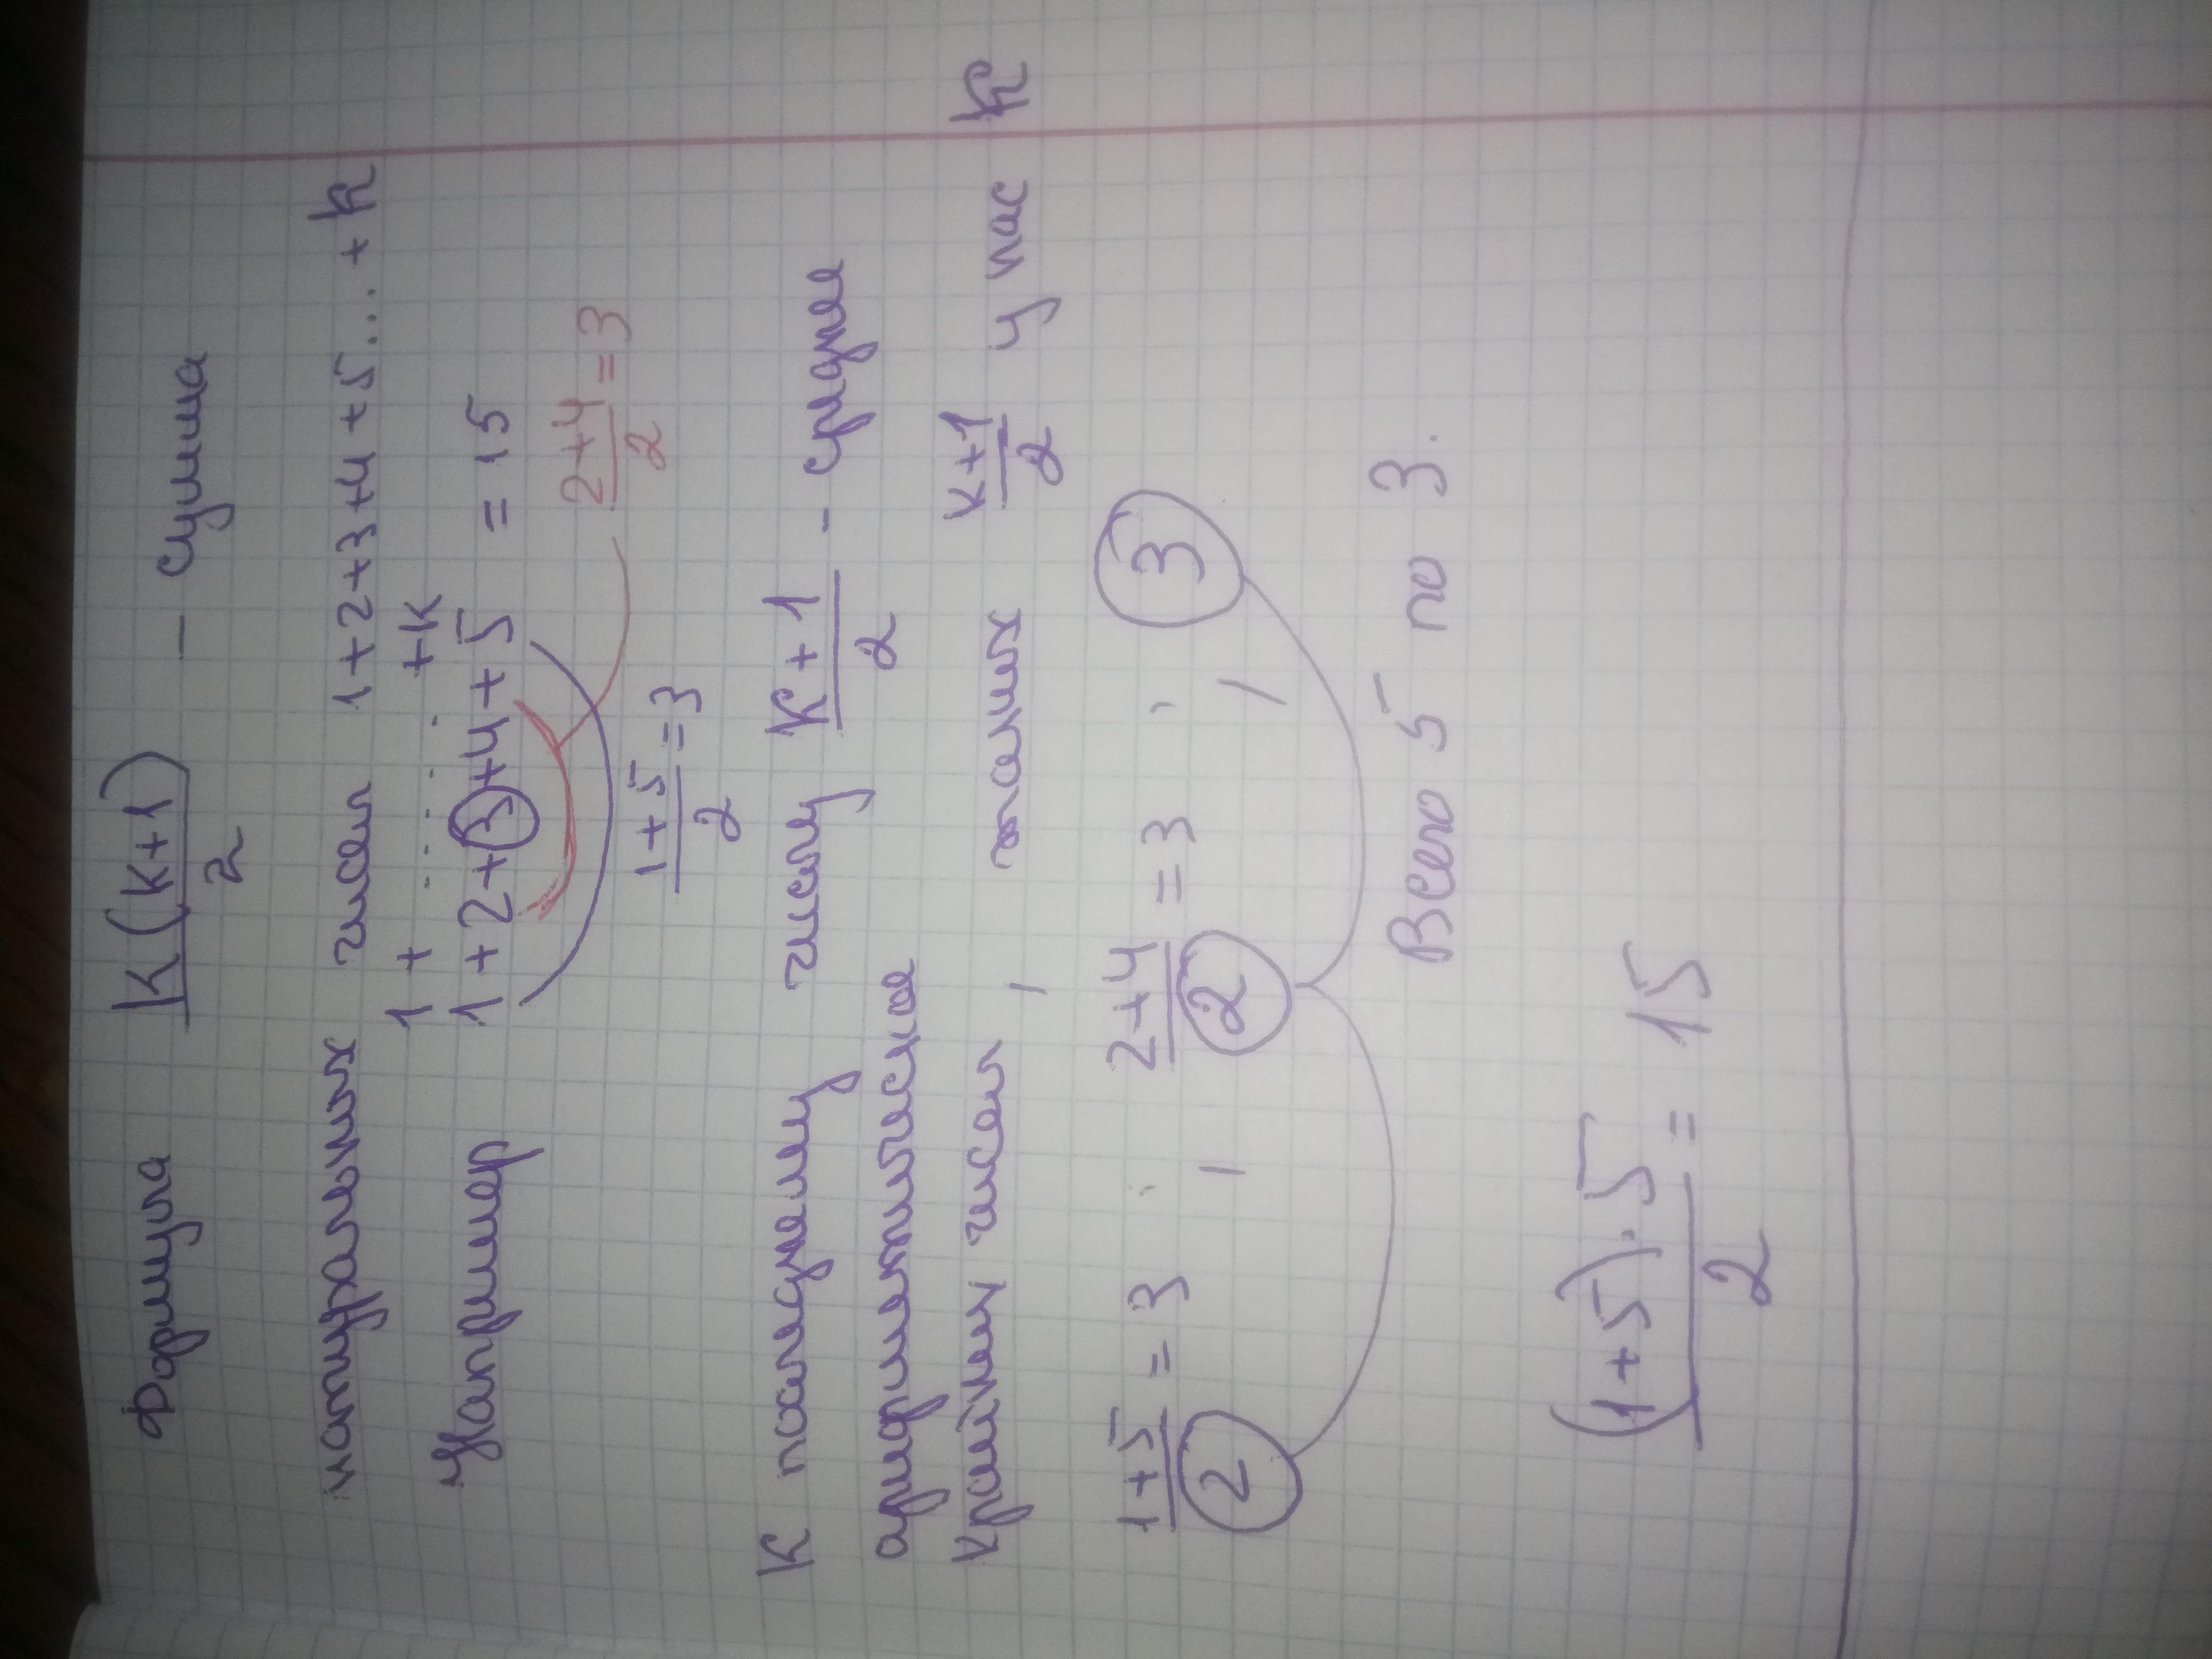 Формула K(K+1)/2 — сумма
натуральных чисел 1+2+3+4+5... + K
1 + ..... +K
Например 1+2+3+4+5 = 15
(2+4)/2=3
(1+5)/2=3
K последнему числу (K+1)/2 - среднее
арифметическое
крайних чисел, таких (K+1)/2 у нас K
(1+5)/2 = 3, (2+4)/2 = 3, 3
Всего 5 по 3.
((1+5)·5)/2 = 15